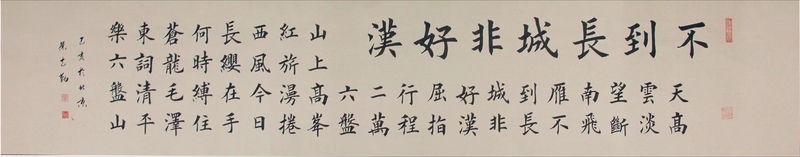 不到長城非好漢
天高
雲淡
望斷
南飛
雁不
到長
城非
好漢
屈指
行程
二萬
六盤
山上高峯
紅旂漫捲
西風今日
長纓在手
何時縛住
蒼龍毛澤
東詞清平
樂六盤山
己亥於北京